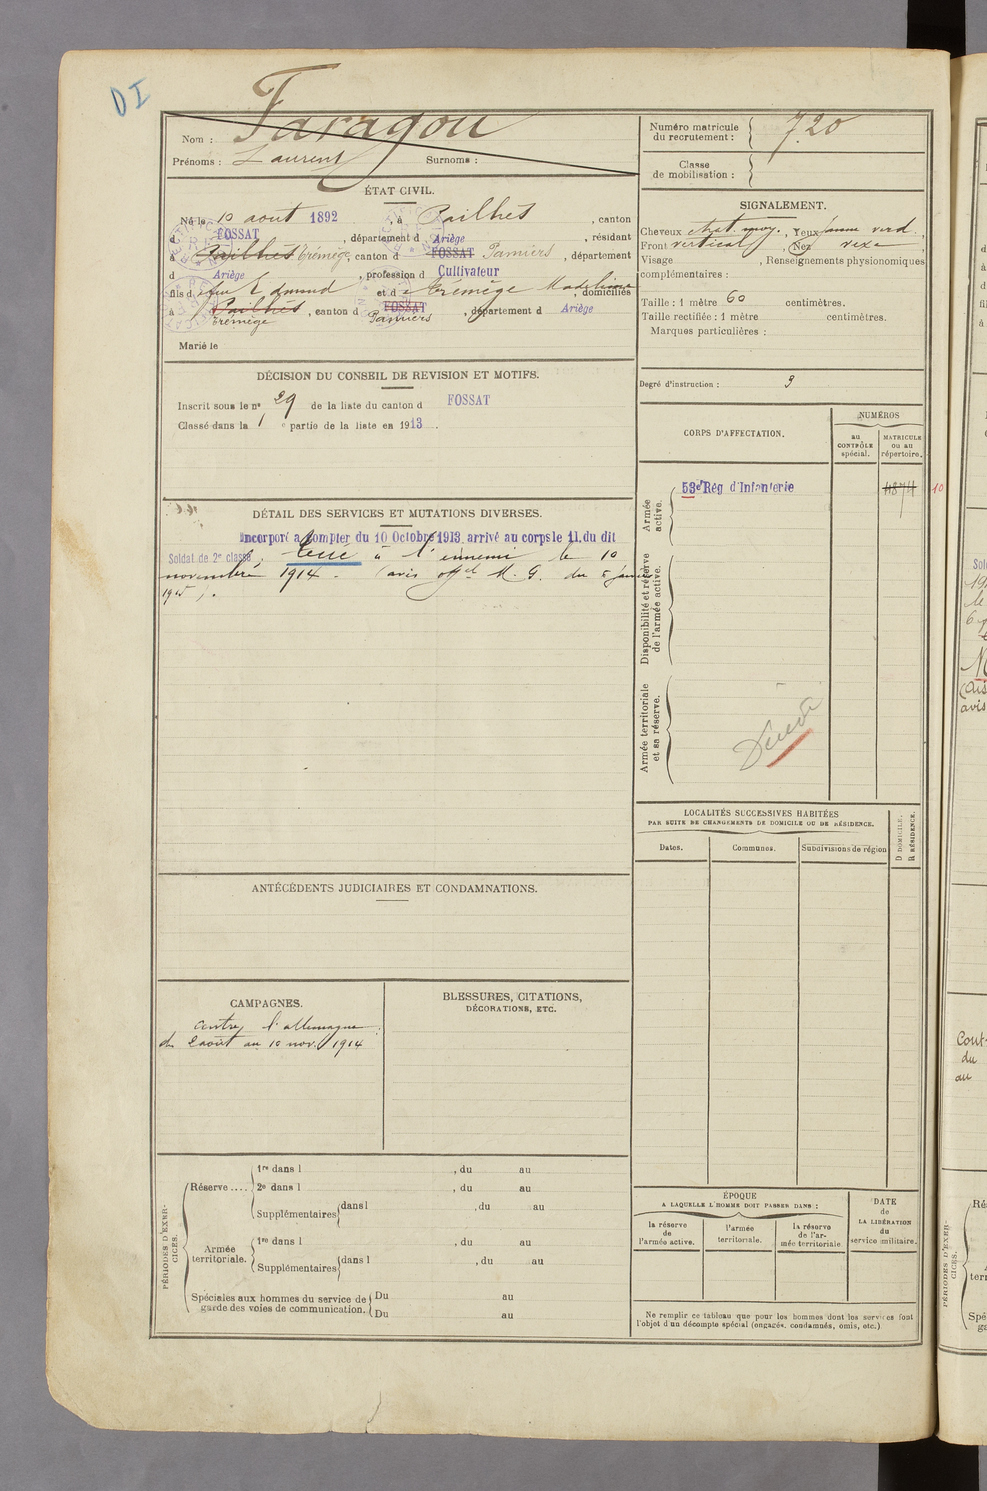 DI
Nom : Faragou
Prénoms : Laurent Surnoms :
Numéro matricule du recrutement : 720
Classe de mobilisation :
ÉTAT CIVIL.
Né le 10 aout 1892, à Pailhès, canton
d FOSSAT, département d Ariège, résidant
à Pailhès Trémège, canton d FOSSAT Pamiers, département
d Ariège, profession d Cultivateur
fils d feu Edmond et d e Trémège Madeleine, domiciliés
à Pailhès, canton d FOSSAT, département d Ariège
Trémège Pamiers
Marié le
SIGNALEMENT.
Cheveux chat. moy., Yeux jaune verd.
Front vertical, Nez vexe,
Visage , Renseignements physionomiques
complémentaires :
Taille : 1 mètre 60 centimètres.
Taille rectifiée : 1 mètre centimètres.
Marques particulières :
Degré d'instruction : 3
DÉCISION DU CONSEIL DE REVISION ET MOTIFS.
Inscrit sous le n° 29 de la liste du canton d FOSSAT
Classé dans la 1 e partie de la liste en 1913.
DÉTAIL DES SERVICES ET MUTATIONS DIVERSES.
Incorporé a compter du 10 Octobre 1913, arrivé au corps le 11, du dit
Soldat de 2e classe, tué à l'ennemi le 10
novembre 1914. (avis offel M. G. du 5 janvier
1915).
CORPS D'AFFECTATION.
NUMÉROS
au CONTRÔLE spécial.
MATRICULE ou au répertoire.
Armée active.
53e Rég d'Infanterie 4874
10
Disponibilité et réserve de l'armée active.
Armée territoriale et sa réserve.
LOCALITÉS SUCCESSIVES HABITÉES
PAR SUITE DE CHANGEMENTS DE DOMICILE OU DE RÉSIDENCE.
Dates. Communes. Subdivisions de région
D DOMICILE.
R RÉSIDENCE.
ANTÉCÉDENTS JUDICIAIRES ET CONDAMNATIONS.
CAMPAGNES.
contre l'allemagne
du 2 août au 10 nov. 1914
BLESSURES, CITATIONS,
DÉCORATIONS, ETC.
PÉRIODES D'EXERCICES.
Réserve....
1re dans l , du au
2e dans l , du au
Supplémentaires dans l , du au
Armée territoriale.
1re dans l , du au
Supplémentaires dans l , du au
Spéciales aux hommes du service de Du au
garde des voies de communication. Du au
ÉPOQUE
A LAQUELLE L'HOMME DOIT PASSER DANS :
la réserve de l'armée active.
l'armée territoriale.
la réserve de l'armée territoriale
DATE de LA LIBÉRATION du service militaire.
Ne remplir ce tableau que pour les hommes dont les services font
l'objet d'un décompte spécial (engagés, condamnés, omis, etc.)